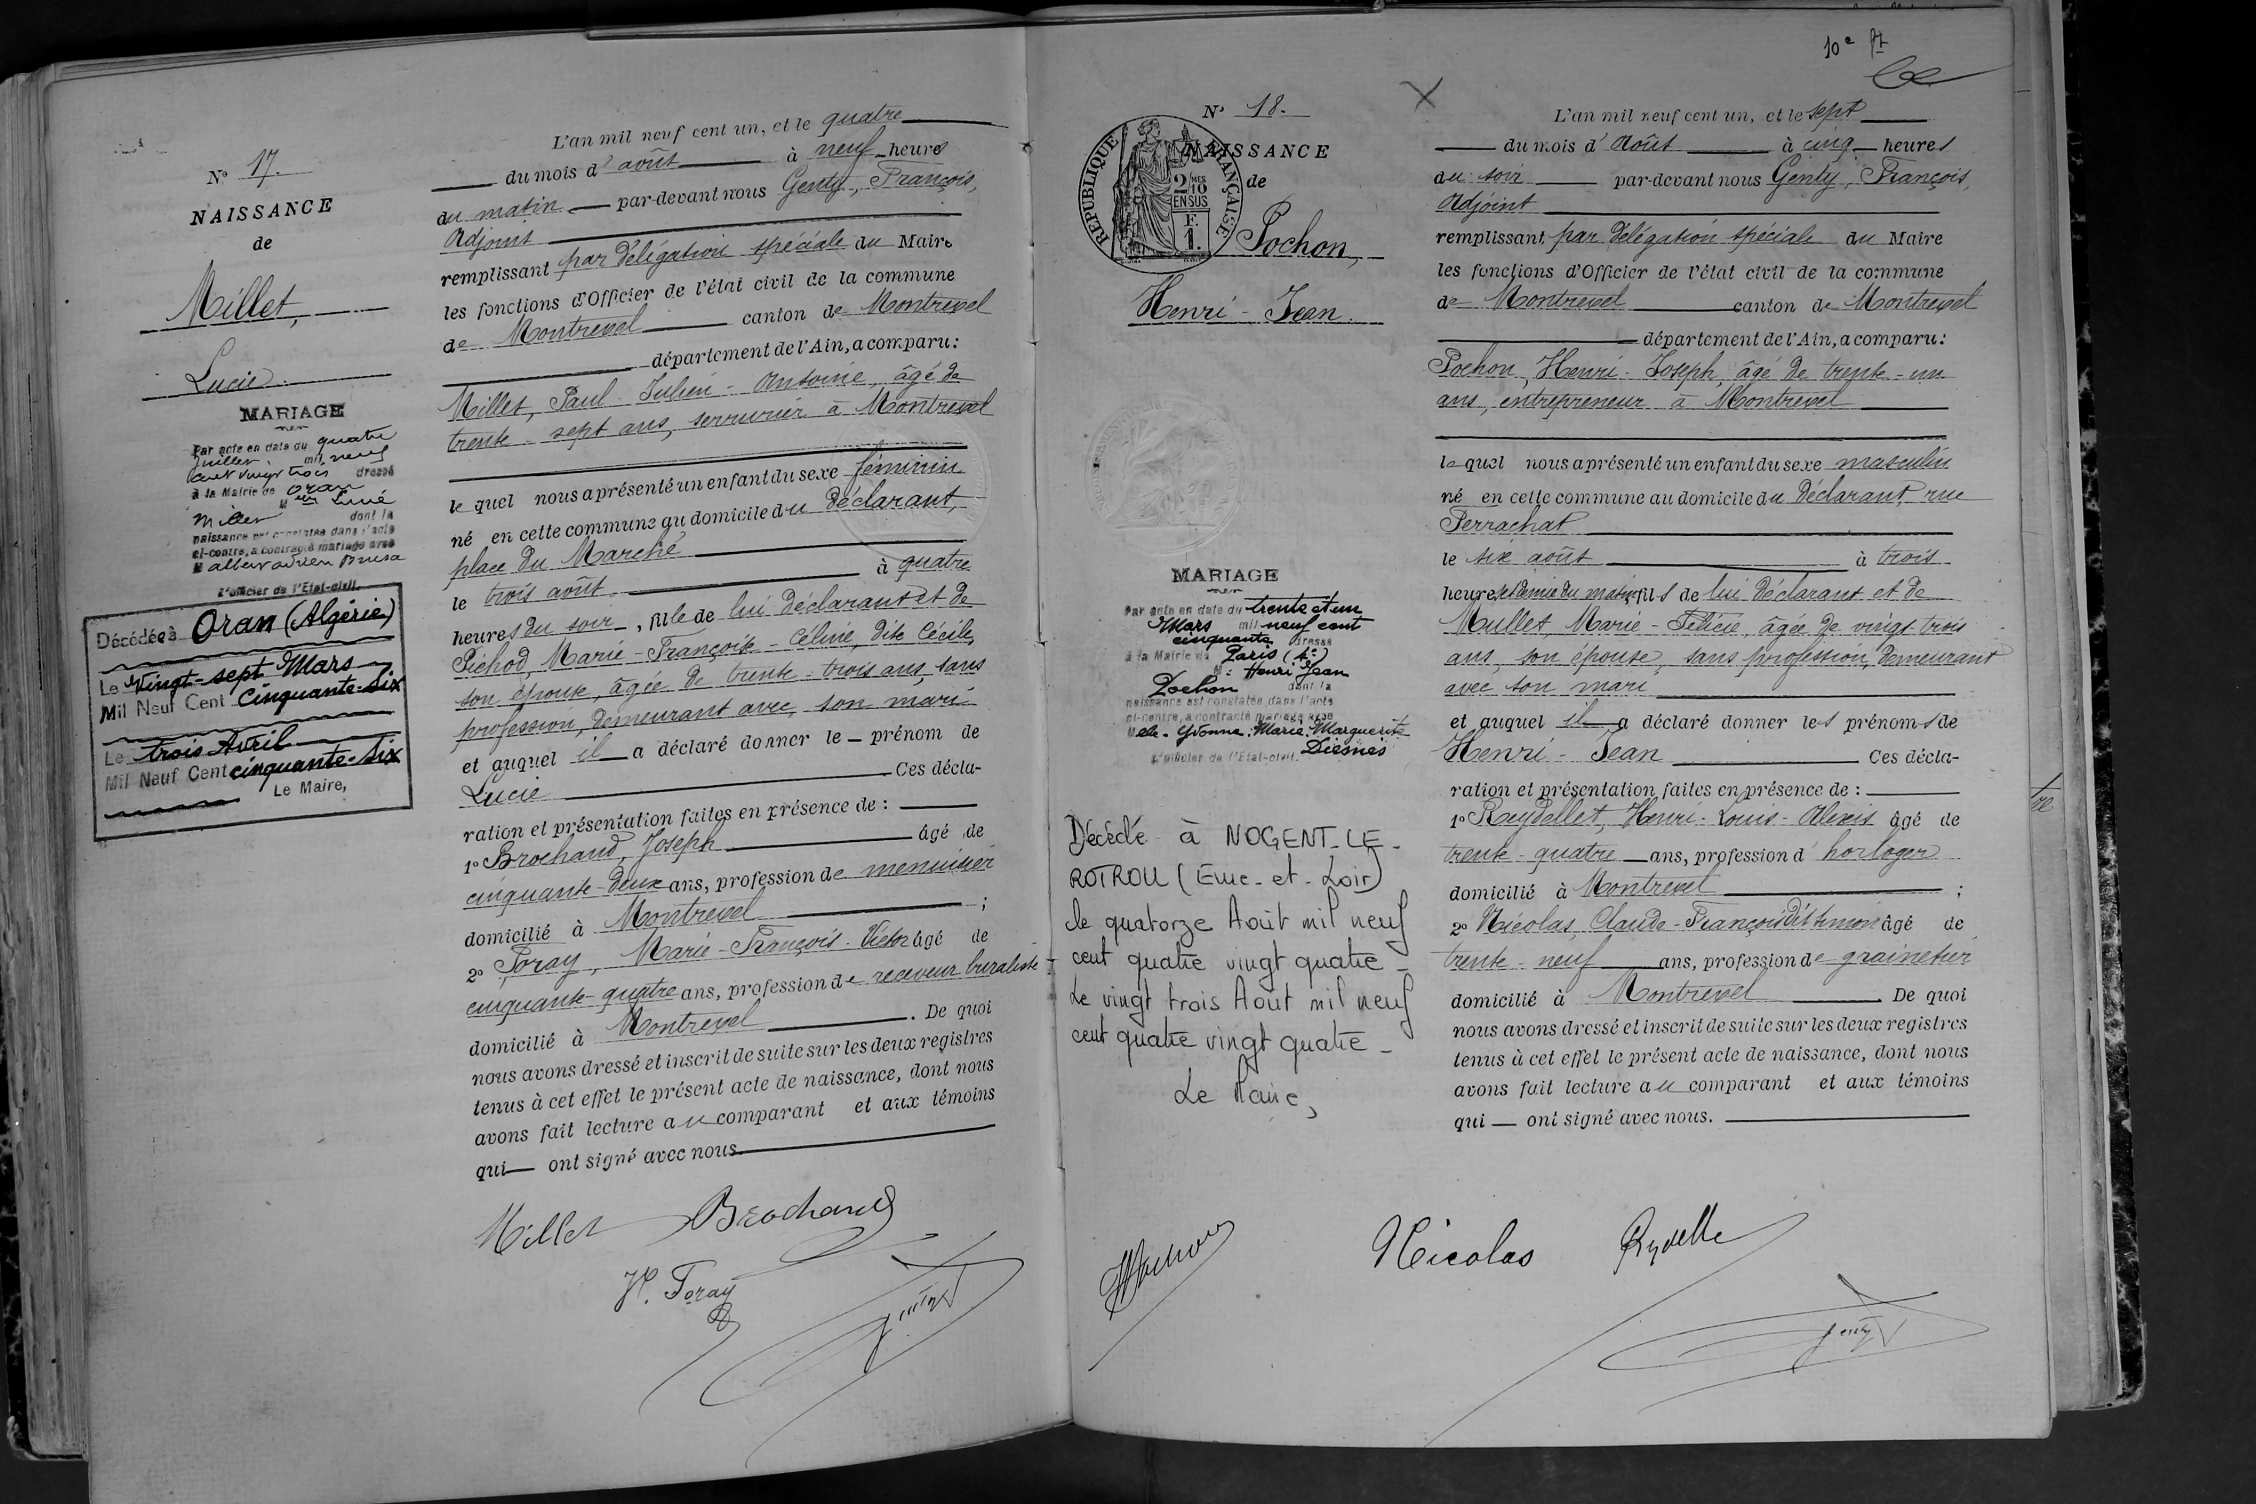 N° 17.
NAISSANCE
de
Millet,
Lucie.
MARIAGE
Par acte en date du quatre
juillet mil neuf
cent vingt trois dressé
à la Mairie de Oran
M elle Lucie
Millet dont la
naissance est constatée dans l'acte
ci-contre, a contracté mariage avec
M albert adrien
L'officier de l'Etat-civil.
Décédée à Oran (Algérie)
Le Vingt-sept Mars
Mil Neuf Cent Cinquante-Six
Le trois Avril
Mil Neuf Cent cinquante-Six
Le Maire,
L'an mil neuf cent un, et le quatre
du mois d'août à neuf heures
du matin par-devant nous Genty, François,
Adjoint
remplissant par délégation spéciale du Maire
les fonctions d'Officier de l'état civil de la commune
de Montrevel canton de Montrevel
département de l'Ain, a comparu:
Millet, Paul-Julien-Antoine, âgé de
trente-sept ans, serrurier à Montrevel
lequel nous a présenté un enfant du sexe féminin
né en cette commune au domicile du déclarant,
place du Marché
le trois août à quatre
heures du soir, fille de lui déclarant et de
Pichod, Marie-Françoise-Céline, dite Cécile,
son épouse, âgée de trente-trois ans, sans
profession, demeurant avec son mari
et auquel il a déclaré donner le prénom de
Lucie Ces décla-
ration et présentation faites en présence de:
1° Brochand, Joseph âgé de
cinquante-deux ans, profession de menuisier
domicilié à Montrevel;
2° Foray, Marie-François-Victor âgé de
cinquante-quatre ans, profession de receveur buraliste
domicilié à Montrevel. De quoi
nous avons dressé et inscrit de suite sur les deux registres
tenus à cet effet le présent acte de naissance, dont nous
avons fait lecture au comparant et aux témoins
qui ont signé avec nous.
Millet Brochand
V. Foray Genty
10e ft
N° 18.
RÉPUBLIQUE FRANÇAISE
2 MES 10
EN SUS
F
1.
NAISSANCE
de
Pochon,
Henri-Jean.
MARIAGE
Par acte en date du trente et un
Mars mil neuf cent
cinquante dressé
à la Mairie de Paris (4e)
Mr Henri Jean
Pochon dont la
naissance est constatée dans l'acte
ci-contre, a contracté mariage avec
Melle Yvonne Marie Marguerite
Diesnis
L'officier de l'Etat-civil.
Décédé à NOGENT-LE-
ROTROU (Eure-et-Loir)
le quatorze Août mil neuf
cent quatre vingt quatre -
Le vingt trois Aout mil neuf
cent quatre vingt quatre -
Le Maire,
L'an mil neuf cent un, et le sept
du mois d'août à cinq heures
du soir par-devant nous Genty, François,
Adjoint
remplissant par délégation spéciale du Maire
les fonctions d'Officier de l'état civil de la commune
de Montrevel canton de Montrevel
département de l'Ain, a comparu:
Pochon, Henri-Joseph, âgé de trente-un
ans, entrepreneur à Montrevel
lequel nous a présenté un enfant du sexe masculin
né en cette commune au domicile du déclarant, rue
Perrachat
le six août à trois
heures et demie du matin, fils de lui déclarant et de
Mullet, Marie-Félicie, âgée de vingt trois
ans, son épouse, sans profession, demeurant
avec son mari
et auquel il a déclaré donner les prénoms de
Henri-Jean Ces décla-
ration et présentation faites en présence de:
1° Reydellet, Henri-Louis-Alexis âgé de
trente-quatre ans, profession d'horloger
domicilié à Montrevel;
2° Nicolas, Claude-François dit Simon âgé de
trente-neuf ans, profession de grainetier
domicilié à Montrevel. De quoi
nous avons dressé et inscrit de suite sur les deux registres
tenus à cet effet le présent acte de naissance, dont nous
avons fait lecture au comparant et aux témoins
qui ont signé avec nous.
HPochon Nicolas Reydellet
Genty